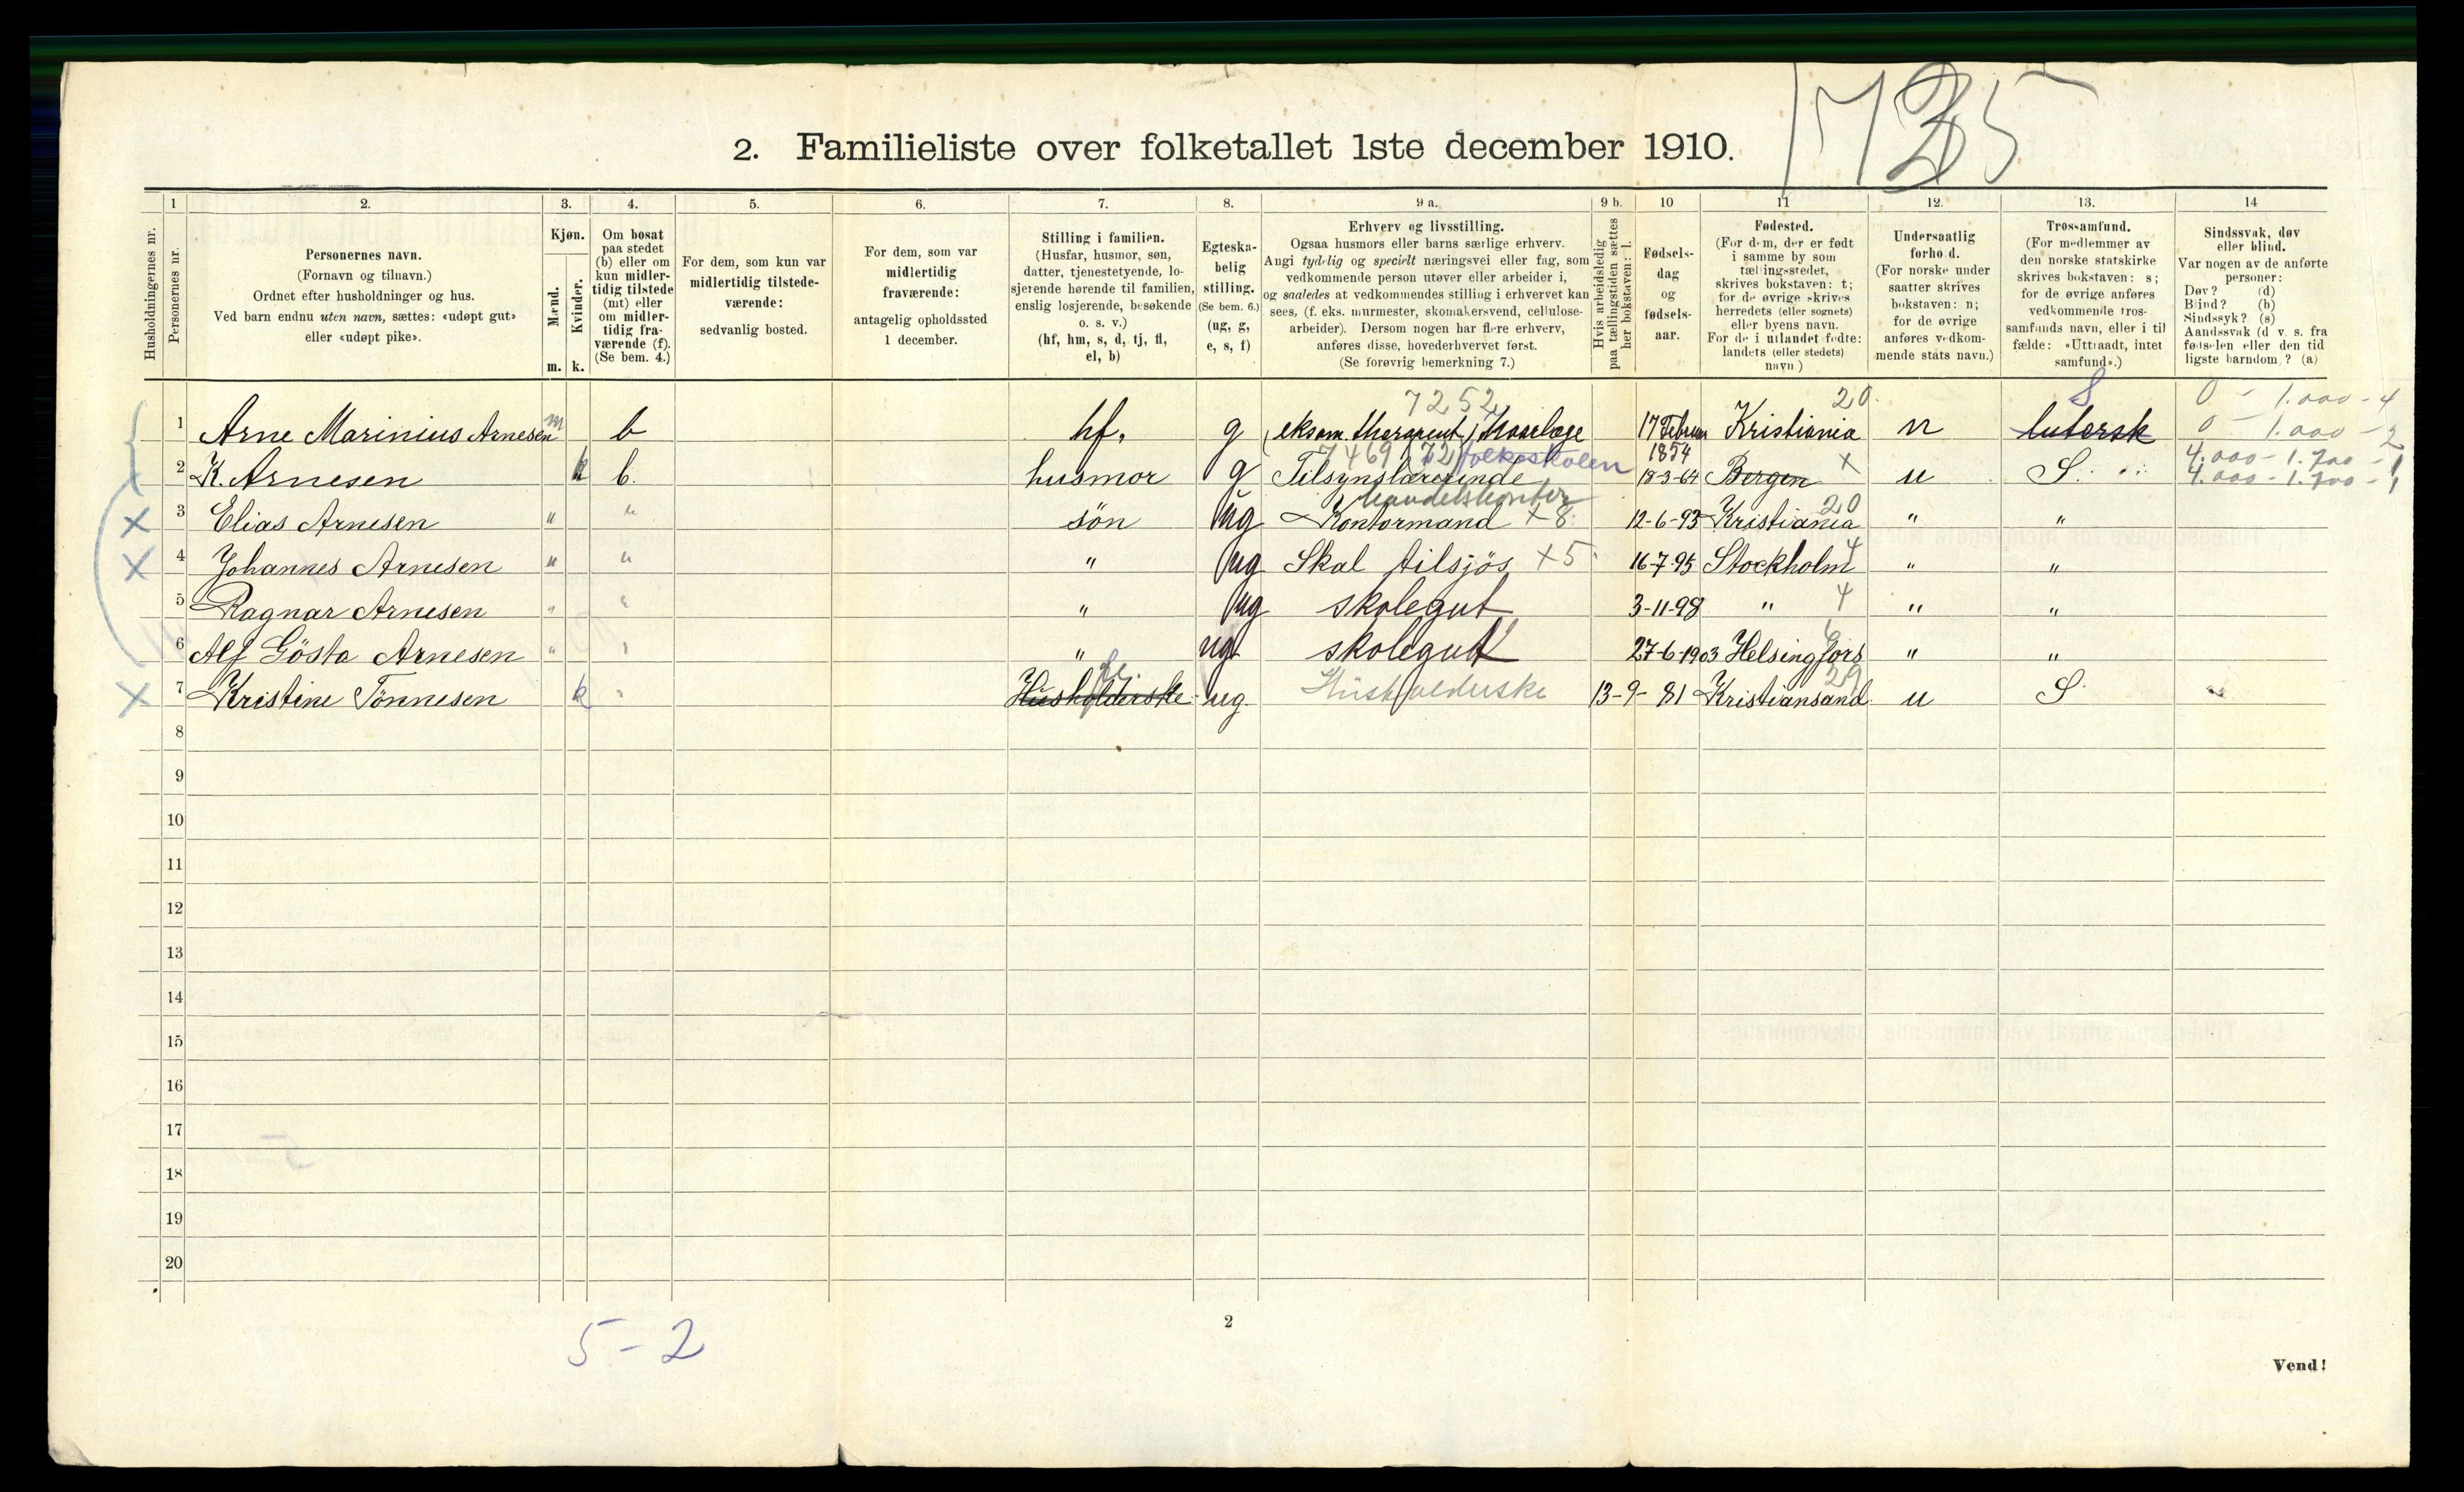 1725
2. Familieliste over folketallet 1ste december 1910.
1 2. 3. 4. 5. 6. 7. 8. 9 a. 9 b. 10 11 12. 13. 14
Husholdningernes nr.
Personernes nr.
Personernes navn.
(Fornavn og tilnavn.)
Ordnet efter husholdninger og hus.
Ved barn endnu uten navn, sættes: «udøpt gut»
eller «udøpt pike».
Kjøn.
Mænd.
Kvinder.
m. k.
Om bosat
paa stedet
(b) eller om
kun midler-
tidig tilstede
(mt) eller
om midler-
tidig fra-
værende (f).
(Se bem. 4.)
For dem, som kun var
midlertidig tilstede-
værende:
sedvanlig bosted.
For dem, som var
midlertidig
fraværende:
antagelig opholdssted
1 december.
Stilling i familien.
(Husfar, husmor, søn,
datter, tjenestetyende, lo-
sjerende hørende til familien,
enslig losjerende, besøkende
o. s. v.)
(hf, hm, s, d, tj, fl,
el, b)
Egteska-
belig
stilling.
(Se bem. 6.)
(ug, g,
e, s, f)
Erhverv og livsstilling.
Ogsaa husmors eller barns særlige erhverv.
Angi tydelig og specielt næringsvei eller fag, som
vedkommende person utøver eller arbeider i,
og saaledes at vedkommendes stilling i erhvervet kan
sees, (f. eks. murmester, skomakersvend, cellulose-
arbeider). Dersom nogen har flere erhverv,
anføres disse, hovederhvervet først.
(Se forøvrig bemerkning 7.)
Hvis arbeidsledig
paa tællingstiden sættes
her bokstaven: l.
Fødsels-
dag
og
fødsels-
aar.
Fødested.
(For dem, der er født
i samme by som
tællingsstedet,
skrives bokstaven: t;
for de øvrige skrives
herredets (eller sognets)
eller byens navn.
For de i utlandet fødte:
landets (eller stedets)
navn.)
Undersaatlig
forhold.
(For norske under
saatter skrives
bokstaven: n;
for de øvrige
anføres vedkom-
mende stats navn.)
Trossamfund.
(For medlemmer av
den norske statskirke
skrives bokstaven: s;
for de øvrige anføres
vedkommende tros-
samfunds navn, eller i til
fælde: «Uttraadt, intet
samfund».)
Sindssvak, døv
eller blind.
Var nogen av de anførte
personer:
Døv? (d)
Blind? (b)
Sindssyk? (s)
Aandssvak (d. v. s. fra
fødselen eller den tid
ligste barndom? (a)
7252 20. S 0 - 1.000 - 4
1 Arne Marinius Arnesen m b hf, g eksam. therapeut 17 Februar 1854 Kristiania n lutersk 0 - 1.000 - 2
7469 folkeskolen 4.000 - 1.700 - 1
2 K. Arnesen k b. husmor g Tilsynslærerinde 18-3-64 Bergen x n S. 4.000 - 1.700 - 1
handelskontor 20
3 Elias Arnesen " " sön ug Kontormand x 8. 12-6-93 Kristiania " "
4 Johannes Arnesen " " " ug Skal tilsjös x 5 16-7-95 Stockholm 4 " "
5 Ragnar Arnesen " " " ug skolegut 3-11-98 " 4 " "
6 Alf Gösta Arnesen " " " ug. skolegut 27-6-1903 Helsingfors " "
29
7 Kristine Tönnesen k " Husholderske ug. Husholderske 13-9-81 Kristiansand n S.
8
9
10
11
12
13
14
15
16
17
18
19
20
5 - 2
2
Vend!